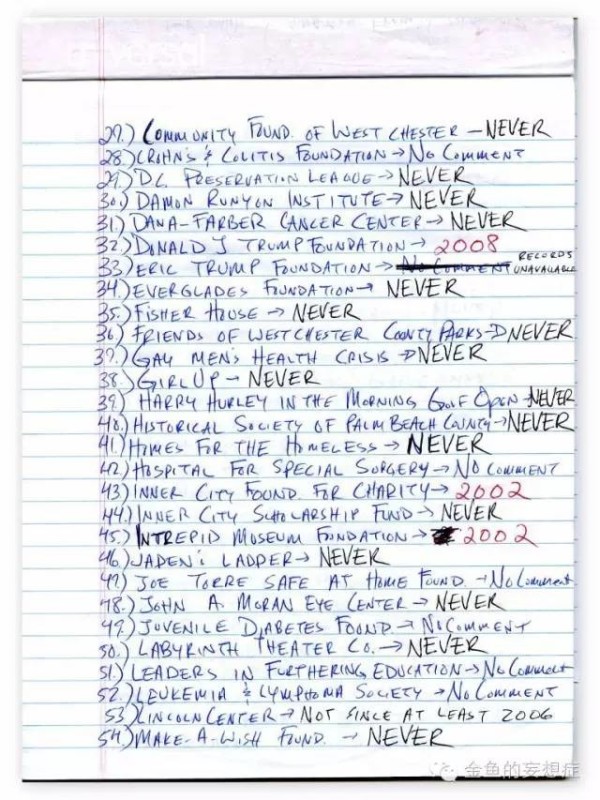 27.) COMMUNITY FOUND. OF WEST CHESTER – NEVER
28.) CROHN'S & COLITIS FOUNDATION → NO COMMENT
29.) D.C. PRESERVATION LEAGUE → NEVER
30.) DAMON RUNYON INSTITUTE → NEVER
31.) DANA-FARBER CANCER CENTER → NEVER
32.) DONALD J TRUMP FOUNDATION → 2008
33.) ERIC TRUMP FOUNDATION → NO COMMENT RECORDS UNAVAILABLE
34.) EVERGLADES FOUNDATION → NEVER
35.) FISHER HOUSE → NEVER
36.) FRIENDS OF WESTCHESTER COUNTY PARKS → NEVER
37.) GAY MEN'S HEALTH CRISIS → NEVER
38.) GIRL UP → NEVER
39.) HARRY HURLEY IN THE MORNING GOLF OPEN → NEVER
40.) HISTORICAL SOCIETY OF PALM BEACH COUNTY → NEVER
41.) HOMES FOR THE HOMELESS → NEVER
42.) HOSPITAL FOR SPECIAL SURGERY → NO COMMENT
43.) INNER CITY FOUND. FOR CHARITY → 2002
44.) INNER CITY SCHOLARSHIP FUND → NEVER
45.) INTREPID MUSEUM FOUNDATION → 2002
46.) JADEN'S LADDER → NEVER
47.) JOE TORRE SAFE AT HOME FOUND. → NO COMMENT
48.) JOHN A. MORAN EYE CENTER → NEVER
49.) JUVENILE DIABETES FOUND. → NO COMMENT
50.) LABYRINTH THEATER CO. → NEVER
51.) LEADERS IN FURTHERING EDUCATION → NO COMMENT
52.) LEUKEMIA & LYMPHOMA SOCIETY → NO COMMENT
53.) LINCOLN CENTER → NOT SINCE AT LEAST 2006
54.) MAKE-A-WISH FOUND. → NEVER
金鱼的妄想症